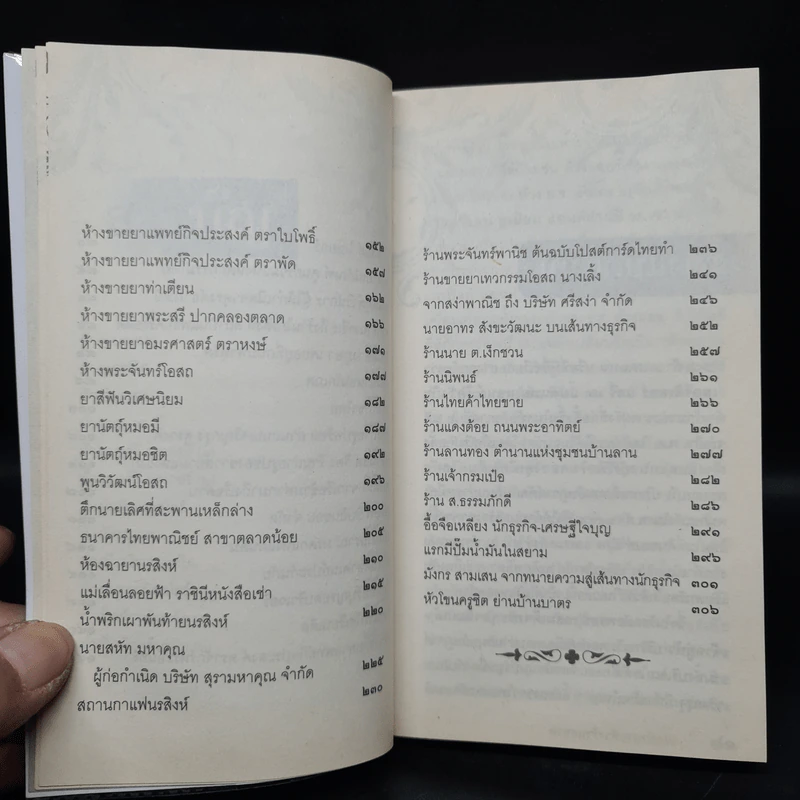 ห้างขายยาแพทย์กิจประสงค์ ตราใบโพธิ์ ๑๕๒
ห้างขายยาแพทย์กิจประสงค์ ตราพัด ๑๕๗
ห้างขายยาท่าเตียน ๑๖๒
ห้างขายยาพระสรี ปากคลองตลาด ๑๖๖
ห้างขายยาอมรศาสตร์ ตราหงษ์ ๑๗๑
ห้างพระจันทร์โอสถ ๑๗๗
ยาสีฟันวิเศษนิยม ๑๘๒
ยานัตถุ์หมอมี ๑๘๗
ยานัตถุ์หมอชิต ๑๙๒
พูนวิวัฒน์โอสถ ๑๙๖
ตึกนายเลิศที่สะพานเหล็กล่าง ๒๐๐
ธนาคารไทยพาณิชย์ สาขาตลาดน้อย ๒๐๕
ห้องฉายานรสิงห์ ๒๑๐
แม่เลื่อนลอยฟ้า ราชินีหนังสือเช่า ๒๑๕
น้ำพริกเผาพันท้ายนรสิงห์ ๒๒๐
นายสหัท มหาคุณ
ผู้ก่อกำเนิด บริษัท สุรามหาคุณ จำกัด ๒๒๕
สถานกาแฟนรสิงห์ ๒๓๐
ร้านพระจันทร์พานิช ต้นฉบับโปสต์การ์ดไทยทำ ๒๓๖
ร้านขายยาเทวกรรมโอสถ นางเลิ้ง ๒๔๑
จากสง่าพาณิช ถึง บริษัท ศรีสง่า จำกัด ๒๔๖
นายอาทร สังขะวัฒนะ บนเส้นทางธุรกิจ ๒๕๒
ร้านนาย ต.เง็กชวน ๒๕๗
ร้านนิพนธ์ ๒๖๑
ร้านไทยค้าไทยขาย ๒๖๖
ร้านแดงต้อย ถนนพระอาทิตย์ ๒๗๐
ร้านลานทอง ตำนานแห่งชุมชนบ้านลาน ๒๗๗
ร้านเจ้ากรมเป๋อ ๒๘๒
ร้าน ส.ธรรมภักดี ๒๘๖
อื้อจือเหลียง นักธุรกิจ-เศรษฐีใจบุญ ๒๙๑
แรกมีปั๊มน้ำมันในสยาม ๒๙๖
มังกร สามเสน จากทนายความสู่เส้นทางนักธุรกิจ ๓๐๑
หัวโขนครูชิต ย่านบ้านบาตร ๓๐๖